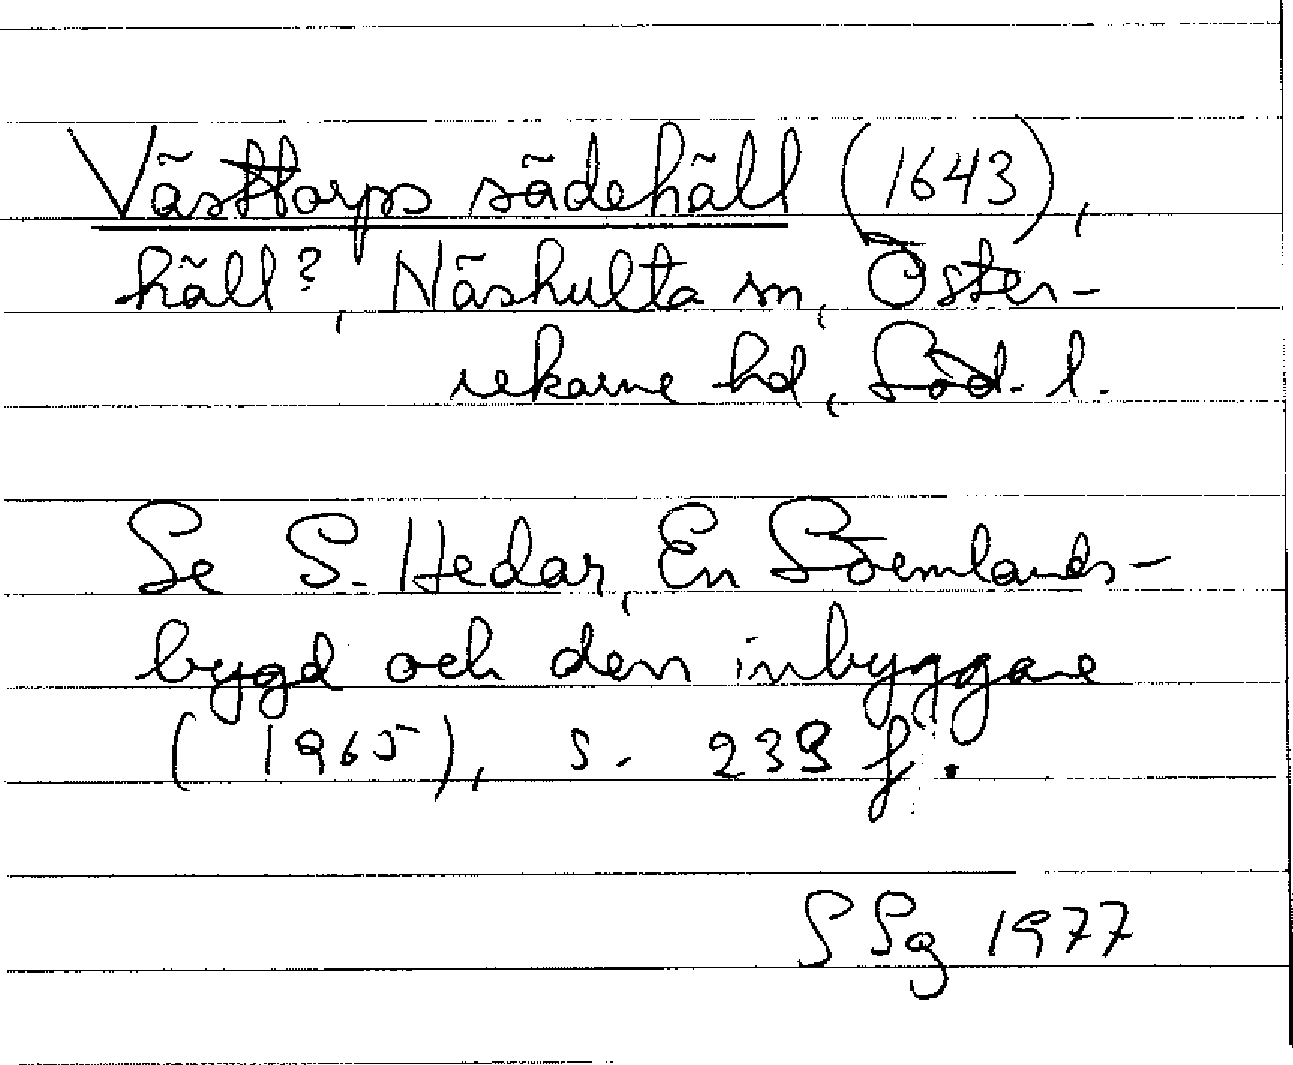 Västtorps sädehäll (1643),
häll?, Näshulta sn, Öster-
rekarne hd, Söd. l.
Se S. Hedar, En Sörmlands-
bygd och den inbyggare
(1965), s. 239 f.
SSg 1977